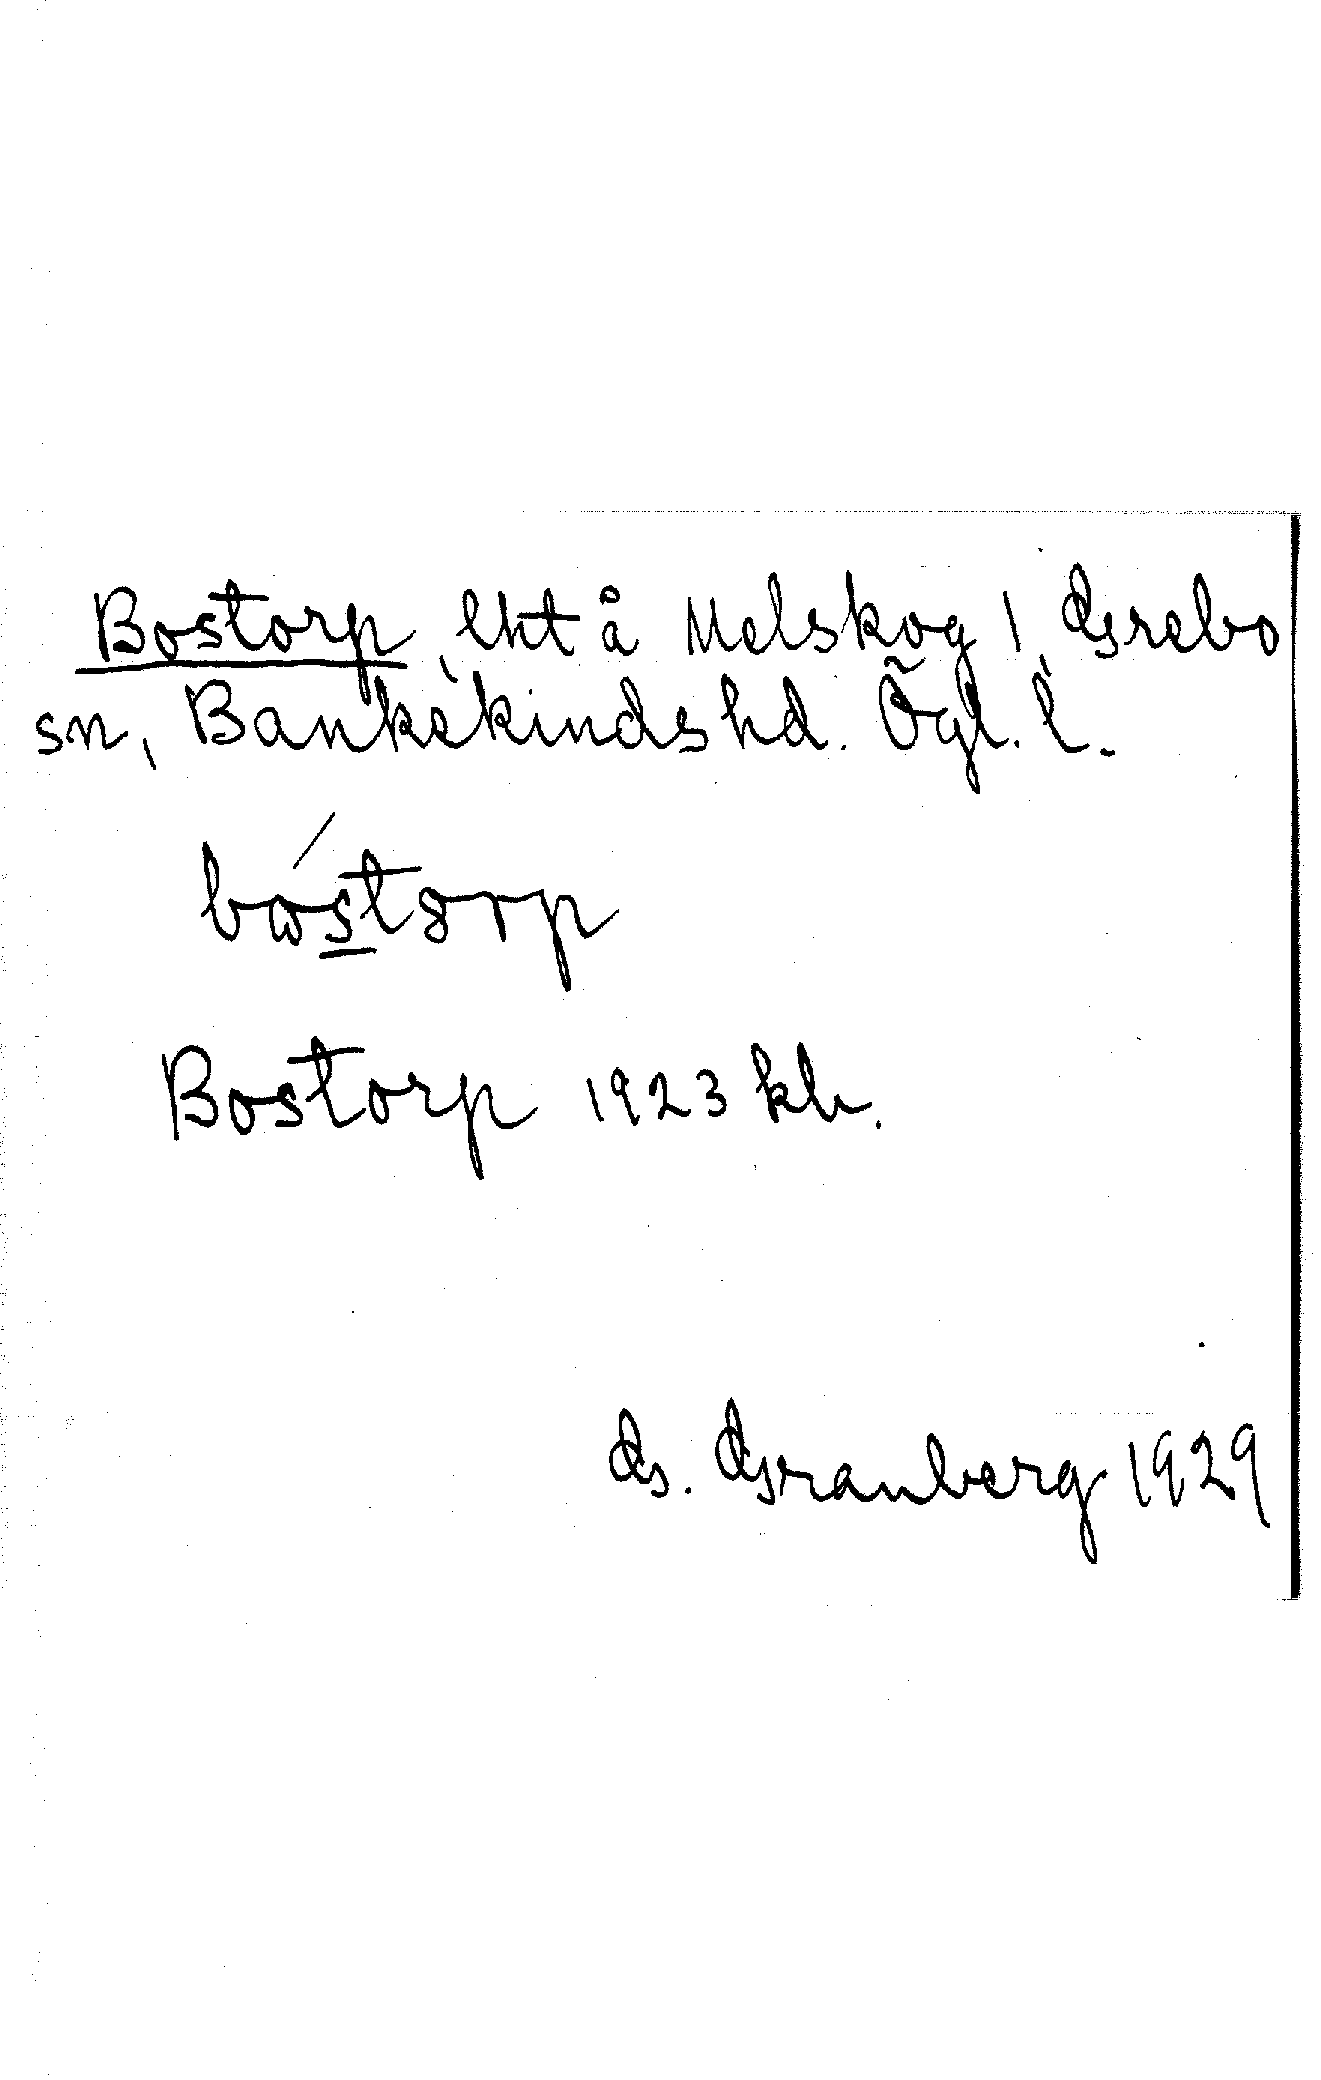 Bostorp, lht å Melskog 1, Grebo
sn, Bankekinds hd. Ögl. l.
bóstorp
Bostorp 1923 kb.
G. Granberg 1929